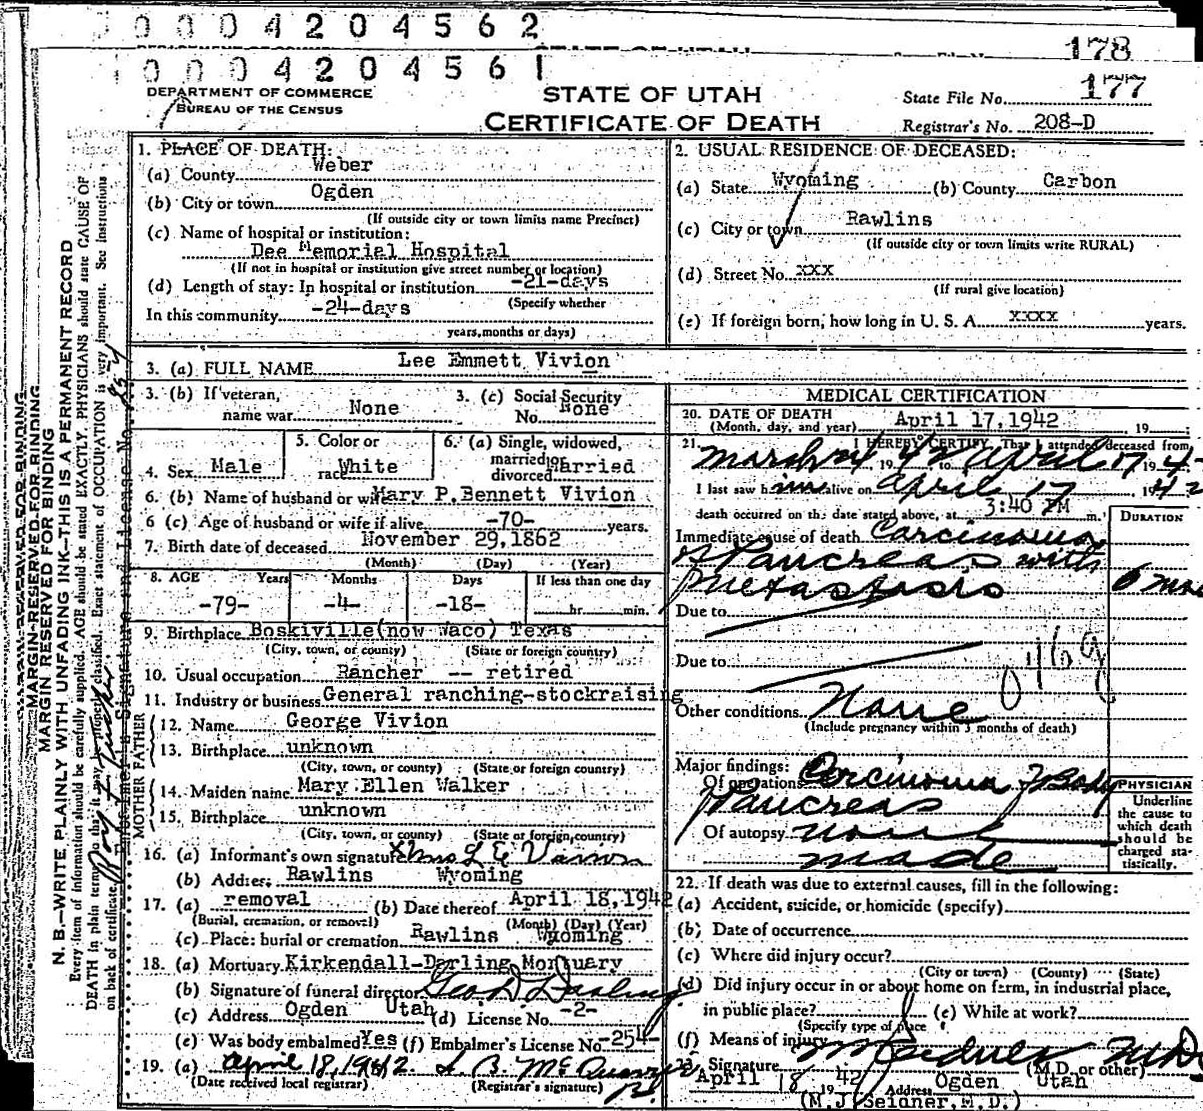 0 0 0 4 2 0 4 5 6 2
178
0 0 0 4 2 0 4 5 6 1
DEPARTMENT OF COMMERCE
BUREAU OF THE CENSUS
STATE OF UTAH
CERTIFICATE OF DEATH
State File No. 177
Registrar's No. 208-D
1. PLACE OF DEATH:
(a) County Weber
(b) City or town Ogden
(If outside city or town limits name Precinct)
(c) Name of hospital or institution:
Dee Memorial Hospital
(If not in hospital or institution give street number or location)
(d) Length of stay: In hospital or institution -21-days
(Specify whether
In this community -24-days
years, months or days)
2. USUAL RESIDENCE OF DECEASED:
(a) State Wyoming (b) County Carbon
(c) City or town Rawlins
(If outside city or town limits write RURAL)
(d) Street No. xxx
(If rural give location)
(e) If foreign born, how long in U. S. A. xxxx years.
3. (a) FULL NAME Lee Emmett Vivion
3. (b) If veteran, name war None
3. (c) Social Security No. None
4. Sex Male
5. Color or race White
6. (a) Single, widowed, married or divorced Married
6. (b) Name of husband or wife Mary P. Bennett Vivion
6 (c) Age of husband or wife if alive -70- years.
7. Birth date of deceased November 29, 1862
(Month) (Day) (Year)
8. AGE Years Months Days If less than one day
-79- -4- -18- hr. min.
9. Birthplace Boskiville(now Waco) Texas
(City, town, or county) (State or foreign country)
10. Usual occupation Rancher -- retired
11. Industry or business General ranching-stockraising
FATHER
12. Name George Vivion
13. Birthplace unknown
(City, town, or county) (State or foreign country)
MOTHER
14. Maiden name Mary Ellen Walker
15. Birthplace unknown
(City, town, or county) (State or foreign country)
16. (a) Informant's own signature Mrs L E
(b) Address Rawlins Wyoming
17. (a) removal (b) Date thereof April 18, 1942
(Burial, cremation, or removal) (Month) (Day) (Year)
(c) Place: burial or cremation Rawlins Wyoming
18. (a) Mortuary Kirkendall-Darling Mortuary
(b) Signature of funeral director Geo D Darling
(c) Address Ogden Utah (d) License No. -2-
(e) Was body embalmed Yes (f) Embalmer's License No. -254-
19. (a) April 18, 1942.
(Date received local registrar) (Registrar's signature)
MEDICAL CERTIFICATION
20. DATE OF DEATH
(Month, day, and year) April 17, 1942, 19
21. I HEREBY CERTIFY, That I attended deceased from
March 24 1942 to April 17 1942
I last saw him alive on April 17, 1942
death occurred on the date stated above, at 3:40 PM m.
DURATION
Immediate cause of death Carcinoma
of Pancreas with
metastasis 6 mos
Due to
Due to
Other conditions None
(Include pregnancy within 3 months of death)
Major findings:
Of operations Carcinoma of Body
of Pancreas
Of autopsy none
made
PHYSICIAN
Underline
the cause to
which death
should be
charged sta-
tistically.
22. If death was due to external causes, fill in the following:
(a) Accident, suicide, or homicide (specify)
(b) Date of occurrence
(c) Where did injury occur?
(City or town) (County) (State)
(d) Did injury occur in or about home on farm, in industrial place,
in public place? (e) While at work?
(Specify type of place
(f) Means of injury
23. Signature M J Seidner M.D.
(M.D. or other)
April 18 1942 Address Ogden Utah
(M.J. Seidner, M.D.)
MARGIN RESERVED FOR BINDING
N. B.—WRITE PLAINLY WITH UNFADING INK—THIS IS A PERMANENT RECORD
Every item of information should be carefully supplied. AGE should be stated EXACTLY. PHYSICIANS should state CAUSE OF
DEATH in plain terms, so that it may be properly classified. Exact statement of OCCUPATION is very important. See instructions
on back of certificate.